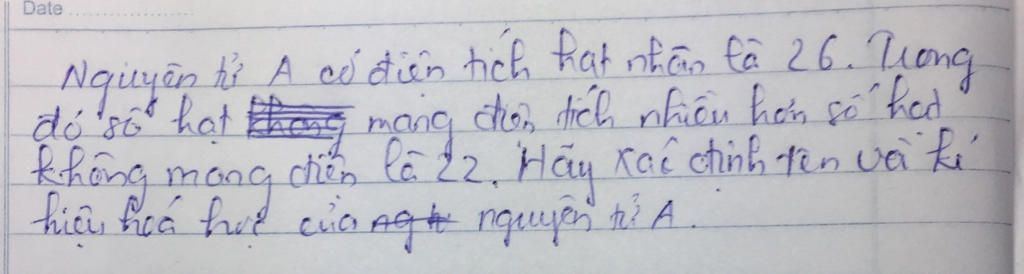 Date
Nguyên tử A có điện tích hạt nhân là 26. Trong
đó số hạt không mang điện tích nhiều hơn số hạt
không mang điện là 22. Hãy xác định tên và kí
hiệu hoá học của ngt nguyên tử A.